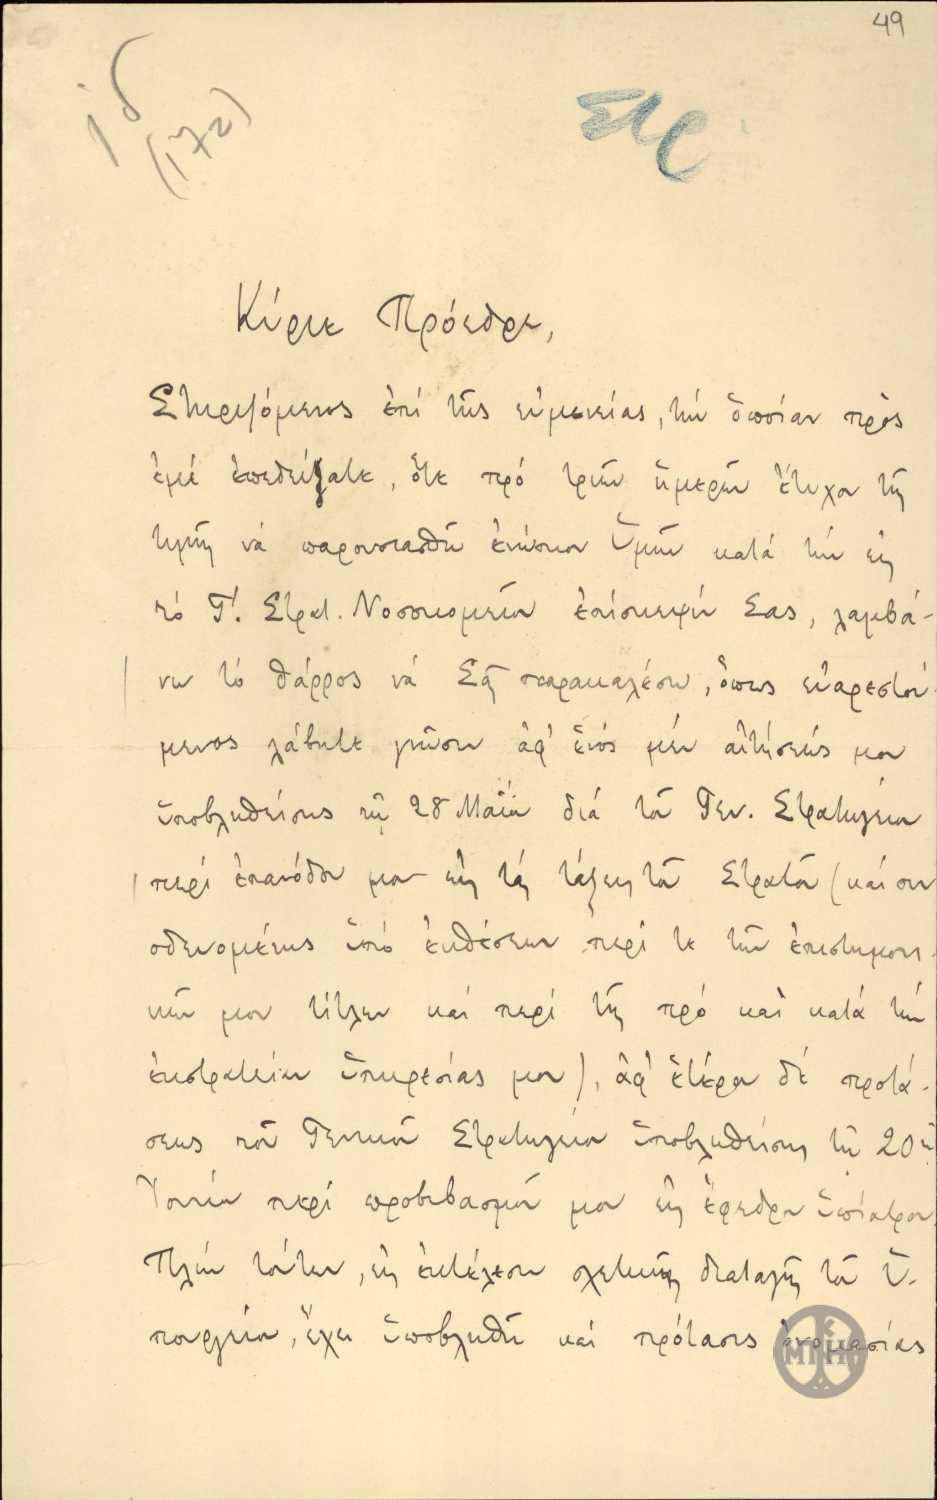 49
ιδ
(172)
Κύριε Πρόεδρε,
Στηριζόμενος ἐπί τῆς εὐμενείας, τήν ὁποίαν πρὸς
ἐμέ ἐπεδείξατε, ὅτε πρό τριῶν ἡμερῶν ἔτυχον τῆς
τιμῆς νά παρουσιασθῶ ἐνώπιον Ὑμῶν κατά τήν εἰς
τό Γ'. Στρατ. Νοσοκομεῖον ἐπίσκεψίν Σας, λαμβά-
νω τό θάρρος νά Σᾶς παρακαλέσω, ὅπως εὐαρεστού-
μενος λάβητε γνῶσιν ἀφ' ἑνός μέν αἰτήσεώς μου
ὑποβληθείσης τῇ 28 Μαΐου διά τοῦ Γεν. Στρατηγείου
περί ἐπανόδου μου εἰς τάς τάξεις τοῦ Στρατοῦ (καί συν
οδευομένης ὑπό ἐκθέσεων περί τε τῶν ἐπιστημονι-
κῶν μου τίτλων καί περί τῆς πρό καὶ κατά τήν
ἐκστρατείαν ὑπηρεσίας μου), ἀφ' ἑτέρου δέ προτά-
σεως τοῦ Γενικοῦ Στρατηγείου ὑποβληθείσης τῇ 20ῇ
Ἰουνίου περί προβιβασμοῦ μου εἰς ἔφεδρον ὑπίατρον.
Πλήν τούτων, εἰς ἐκτέλεσιν σχετικῆς διαταγῆς τοῦ Ὑ-
πουργείου, ἔχει ὑποβληθῆ καί πρότασις ὀνομασίας